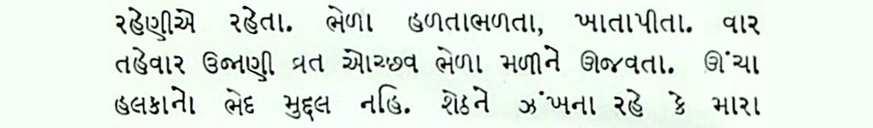 રહેણીએ રહેતા. ભેળા હળતાભળતા, ખાતાપીતા. વાર
તહેવાર ઉજાણી વ્રત ઓચ્છવ ભેળા મળીને ઊજવતા. ઊંચા
હલકાનો ભેદ મુદ્દલ નહિ. શેઠને ઝંખના રહે કે મારા